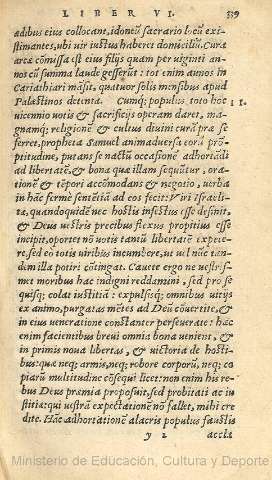 LIBER VI. 339
adibus eius collocant, idoneũ sacrario locũ exi-
stimantes, ubi uir iustus haberet domicilũ. Cura
arcæ cõmissa est eius filijs quam per uiginti an-
nos cũ summa laude gesserũt: tot enim annos in
Cariathiari mãsit, quatuor solis mensibus apud
Palæstinos detenta. Cumq; populus toto hoc 1.
uicennio uotis & sacrificijs operam daret, ma-
gnamq; religionē & cultus diuini curã præ se
ferret, propheta Samuel animaduersa eorũ prõ-
ptitudine, putans se nactũ occasionē adhortãdi
ad libertatē, & bona quæ illam sequũtur, ora-
tionē & tēpori accõmodans & negotio, uerba
in hãc fermè sententiã ad eos fecit: Viri Israeli-
tæ, quandoquidē nec hostis infestus esse desinit,
& Deus uestris precibus flexus propitius esse
incipit, oportet nõ uotis tantũ libertatē expete-
re, sed eò totis uiribus incumbere, ut uel nũc tan-
dem illa potiri cõtingat. Cauete ergo ne uestris-
met moribus hac indigni reddamini, sed pro se
quisq; colat iustitiã: expulsisq; omnibus uitijs
ex animo, purgatæ mētes ad Deũ cõuertite, &
in eius ueneratione constanter perseuerate: hæc
enim facientibus breui omnia bona uenient, &
in primis noua libertas, & uictoria de hosti-
bus: quæ neq; armis, neq; robore corporũ, neq; co
piarũ multitudine cõsequi licet: non enim his re-
bus Deus præmia proposuit, sed probitati ac iu
stitiæ: qui uestrã expectationē nõ fallet, mihi cre
dite. Hãc adhortationē alacris populus faustis
y 2 accla
Ministerio de Educación, Cultura y Deporte